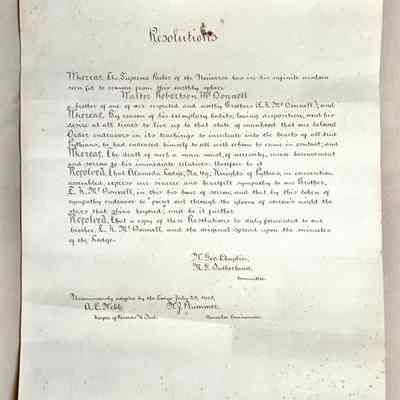 Resolutions
Whereas, The Supreme Ruler of the Universe has in his infinite wisdom
seen fit to remove from this earthly sphere
Walter Robertson McDonnell
a brother of one of our respected and worthy Brothers and
Whereas, By reason of his exemplary habits, loving disposition, and his
desire at all times to live up to that state of manhood that our beloved
Order endeavors in its teachings to inculcate into the hearts of all true
Pythians, he had endeared himself to all with whom he came in contact; and
Whereas, The death of such a man must, of necessity, cause bereavement
and sorrow to his immediate relatives; therefore be it
Resolved, That Alameda Lodge, Knights of Pythias, in convention
assembled, express our sincere and heartfelt sympathy to our Brother,
McDonnell, in this his hour of sorrow and that by this token of
sympathy endeavor to "point out through the gloom of sorrow's night the
stars that shine beyond", and be it further
Resolved, That a copy of these Resolutions be duly forwarded to our
brother, McDonnell, and the original spread upon the minutes
of the Lodge.
Geo. Chaplin,
Sutherland,
Committee.
Unanimously adopted by the Lodge July
A. E. Webb
Plummer
Keeper of Records & Seal.
Chancellor Commander.